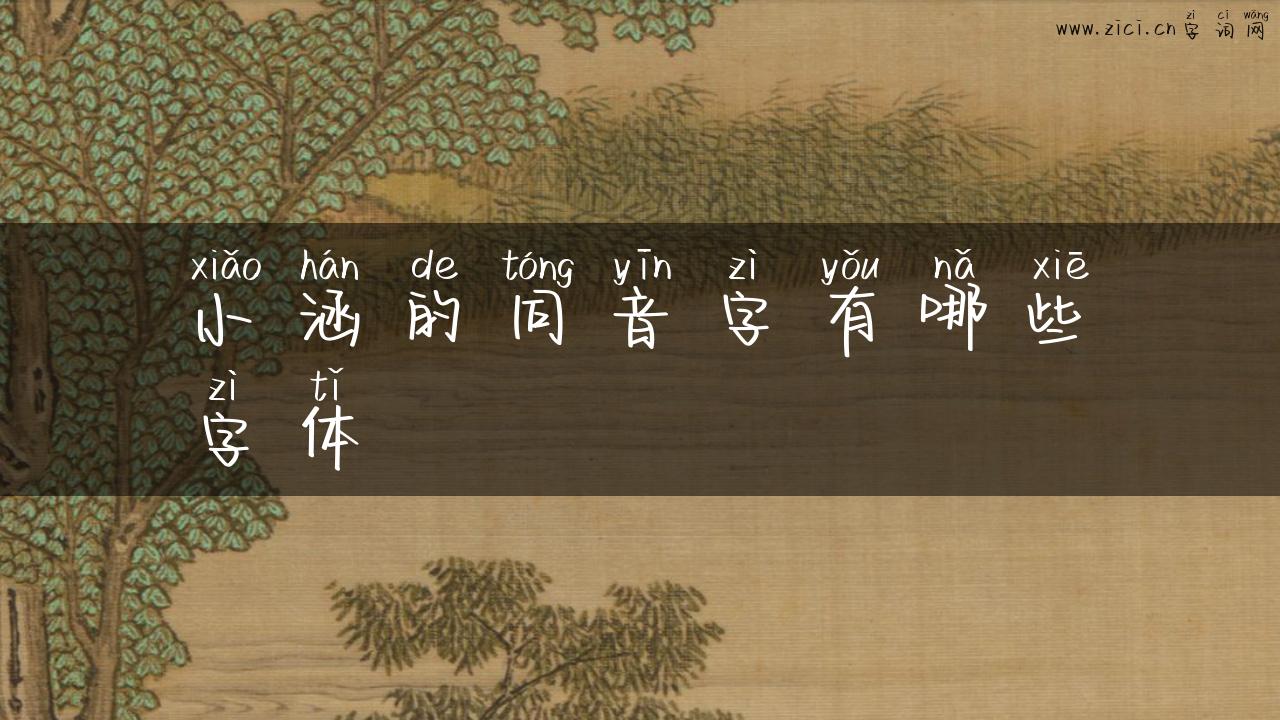 zì cí wǎng
www.zici.cn 字 词 网
xiǎo hán de tóng yīn zì yǒu nǎ xiē
小 涵 的 同 音 字 有 哪 些
zì tǐ
字 体